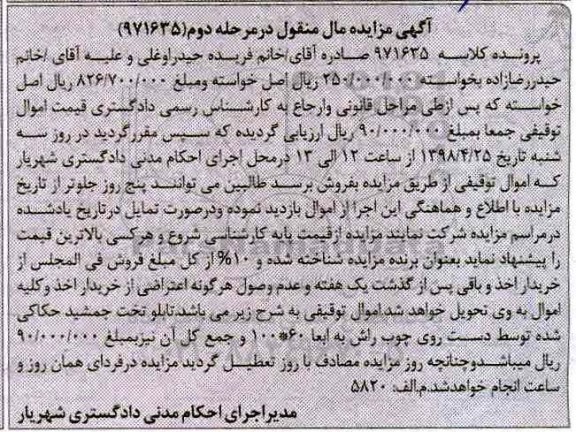 آگهی مزایده مال منقول درمرحله دوم(۹۷۱۶۳۵)
پرونده کلاسه ۹۷۱۶۳۵ صادره آقای/خانم فریده حیدراوغلی و علیه آقای /خانم
حیدررضازاده بخواسته ۲۵۰/۰۰۰/۰۰۰ ریال اصل خواسته ومبلغ ۸۲۶/۷۰۰/۰۰۰ ریال اصل
خواسته که پس ازطی مراحل قانونی وارجاع به کارشناس رسمی دادگستری قیمت اموال
توقیفی جمعا بمبلغ ۹۰/۰۰۰/۰۰۰ ریال ارزیابی گردیده که سپس مقررگردید در روز سه
شنبه تاریخ ۱۳۹۸/۴/۲۵ از ساعت ۱۲ الی ۱۳ درمحل اجرای احکام مدنی دادگستری شهریار
که اموال توقیفی از طریق مزایده بفروش برسد طالبین می توانند پنج روز جلوتر از تاریخ
مزایده با اطلاع و هماهنگی این اجرا از اموال بازدید نموده ودرصورت تمایل درتاریخ یادشده
درمراسم مزایده شرکت نمایند مزایده ازقیمت پایه کارشناسی شروع و هرکسی بالاترین قیمت
را پیشنهاد نماید بعنوان برنده مزایده شناخته شده و ۱۰% از کل مبلغ فروش فی المجلس از
خریدار اخذ و باقی پس از گذشت یک هفته و عدم وصول هرگونه اعتراضی از خریدار اخذ وکلیه
اموال به وی تحویل خواهد شد.اموال توقیفی به شرح زیر می باشد.تابلو تخت جمشید حکاکی
شده توسط دست روی چوب راش به ابعا ۶۰*۱۰۰ و جمع کل آن نیزبمبلغ ۹۰/۰۰۰/۰۰۰
ریال میباشدوچنانچه روز مزایده مصادف با روز تعطیل گردید مزایده درفردای همان روز و
ساعت انجام خواهدشد.م.الف: ۵۸۲۰
مدیراجرای احکام مدنی دادگستری شهریار